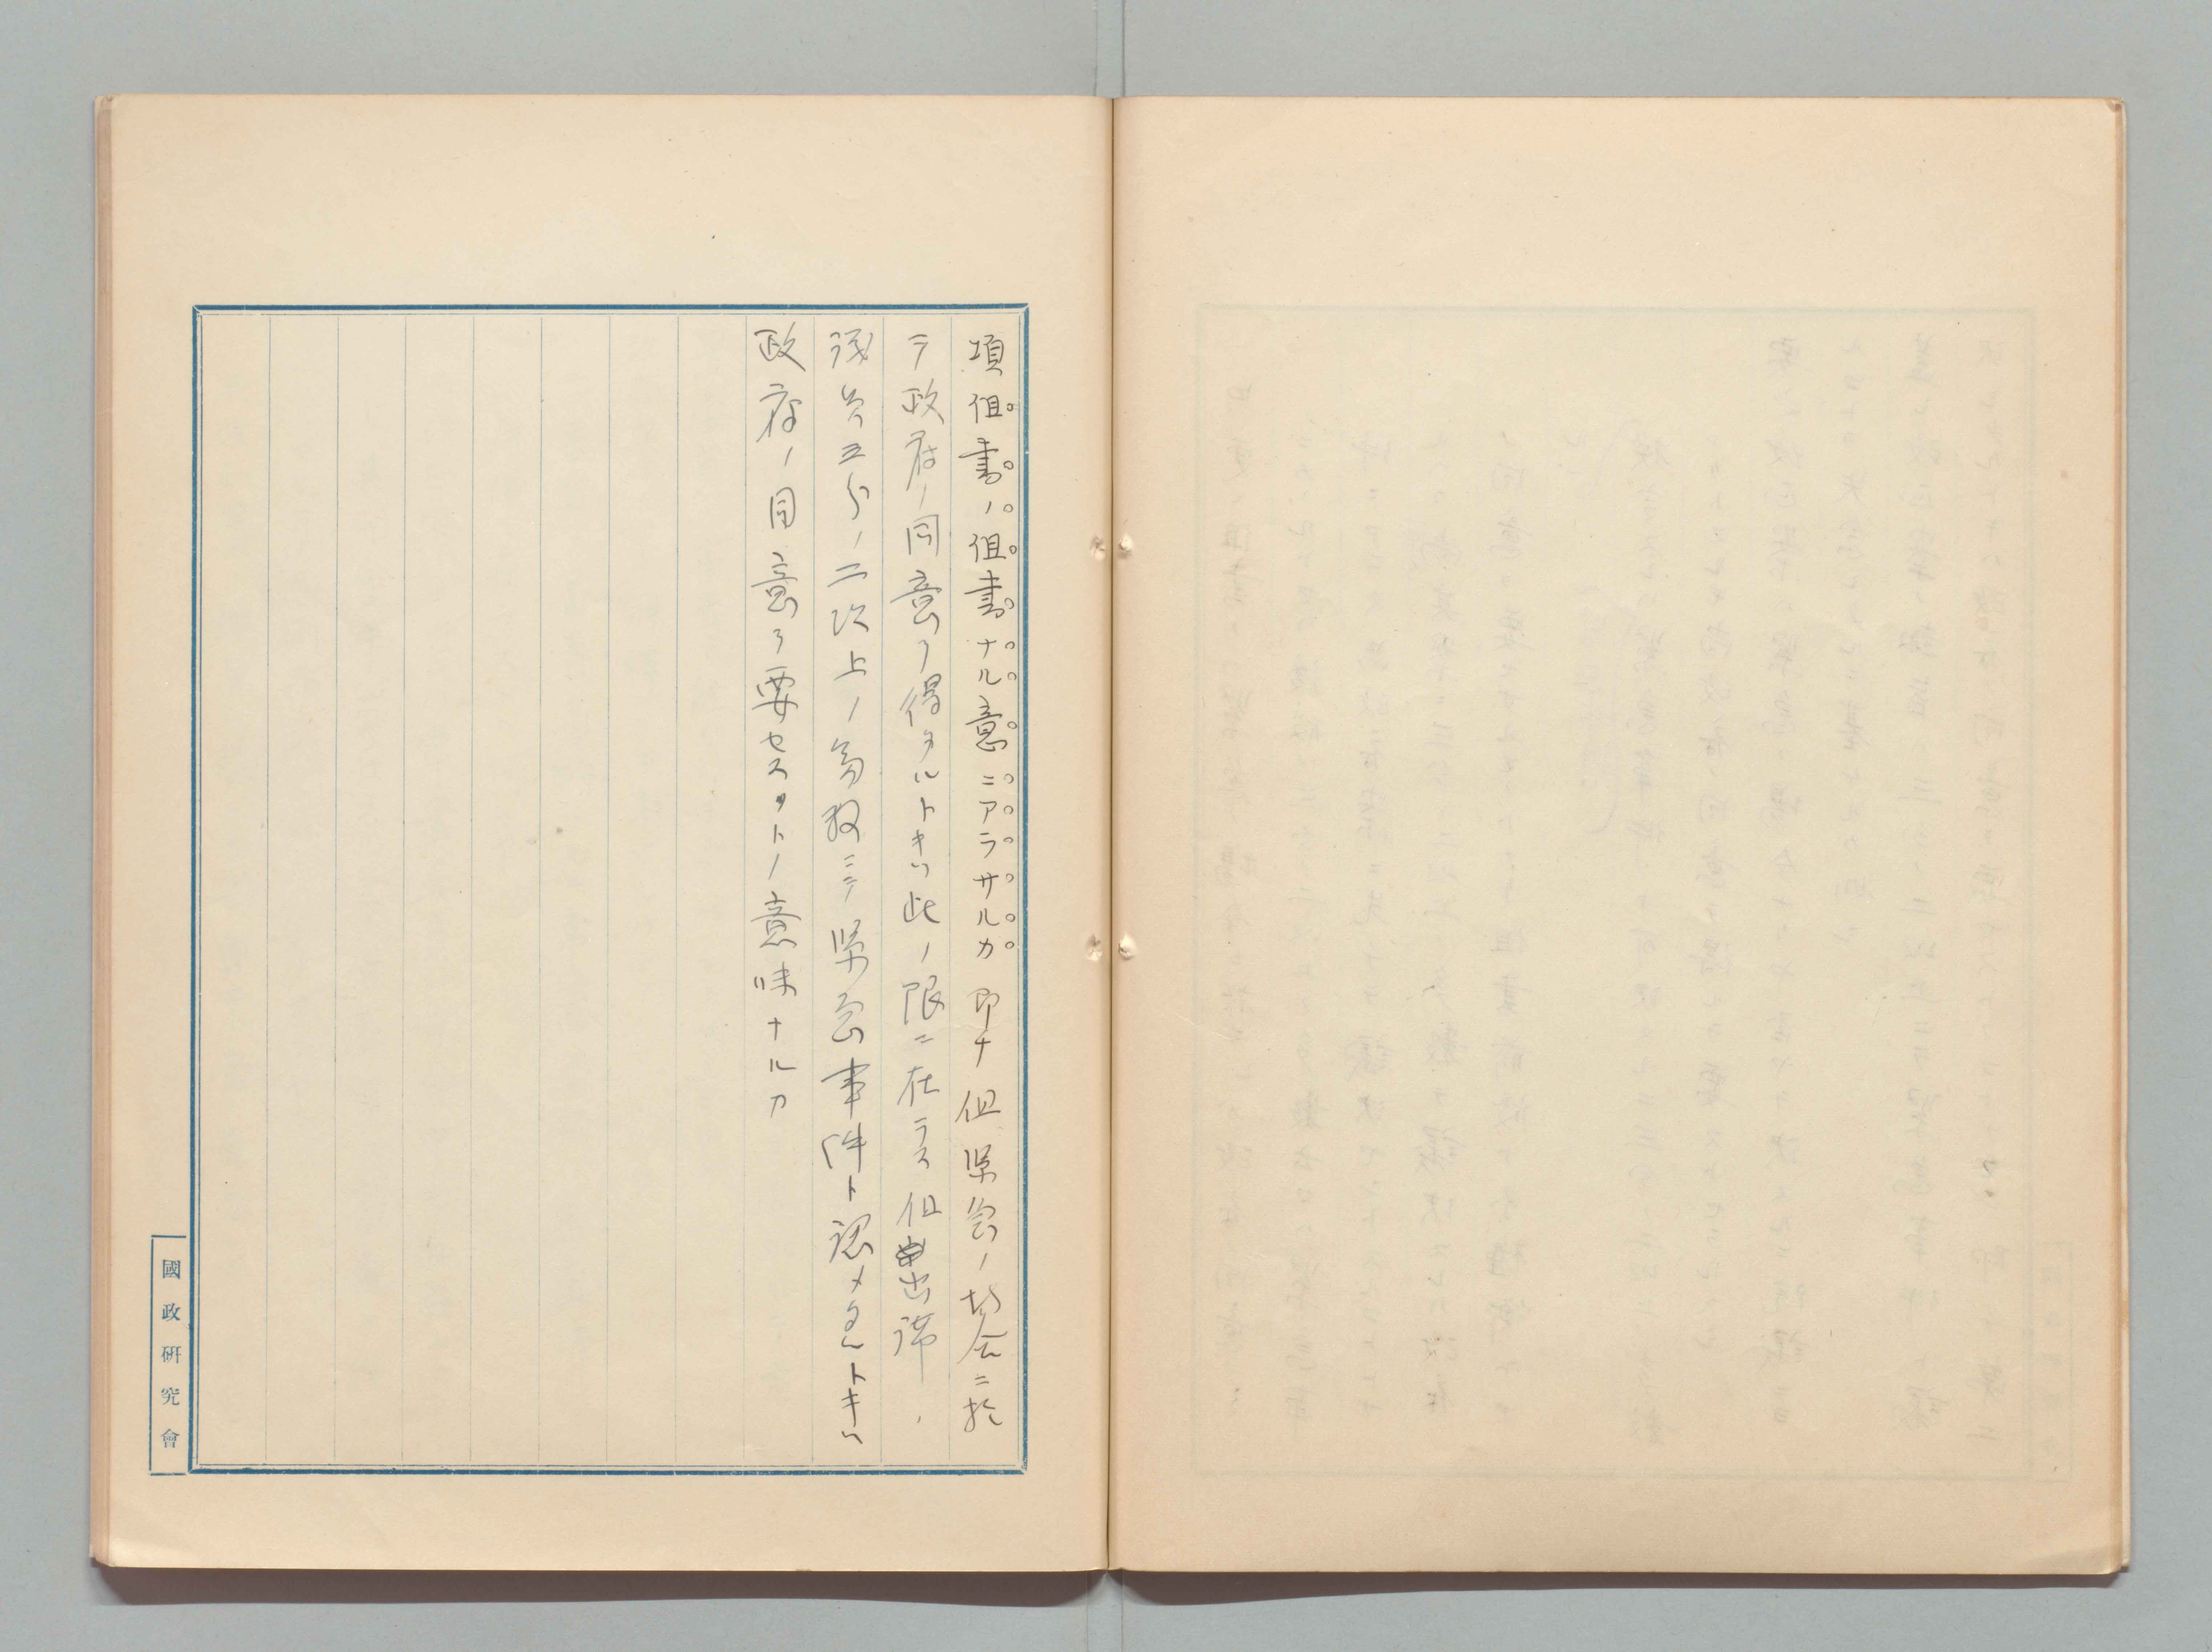 項但書ノ但書ナル意ニアラサルカ即チ但緊急ノ場合ニ於
テ政府ノ同意ヲ得タルトキハ此ノ限ニ在ラス但出席
議員三分ノ二以上ノ多数ニテ緊急事件ト認メタルトキハ
政府ノ同意ヲ要セストノ意味ナルカ
國政研究會